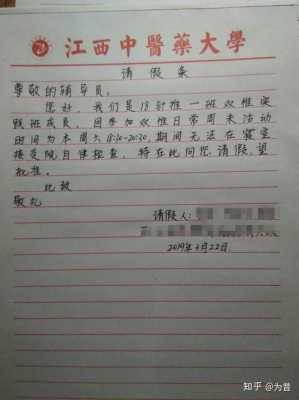 江西中醫藥大學
请假条
尊敬的辅导员：
您好，我们是18针推一班双惟实
践班成员，因参加双惟日常周末活动
时间为本周六18:30-20:30，期间无法在寝室
接受院自律检查，特在此向您请假，望
批准。
此致
敬礼
请假人：
2019年3月22日
知乎 @为昔